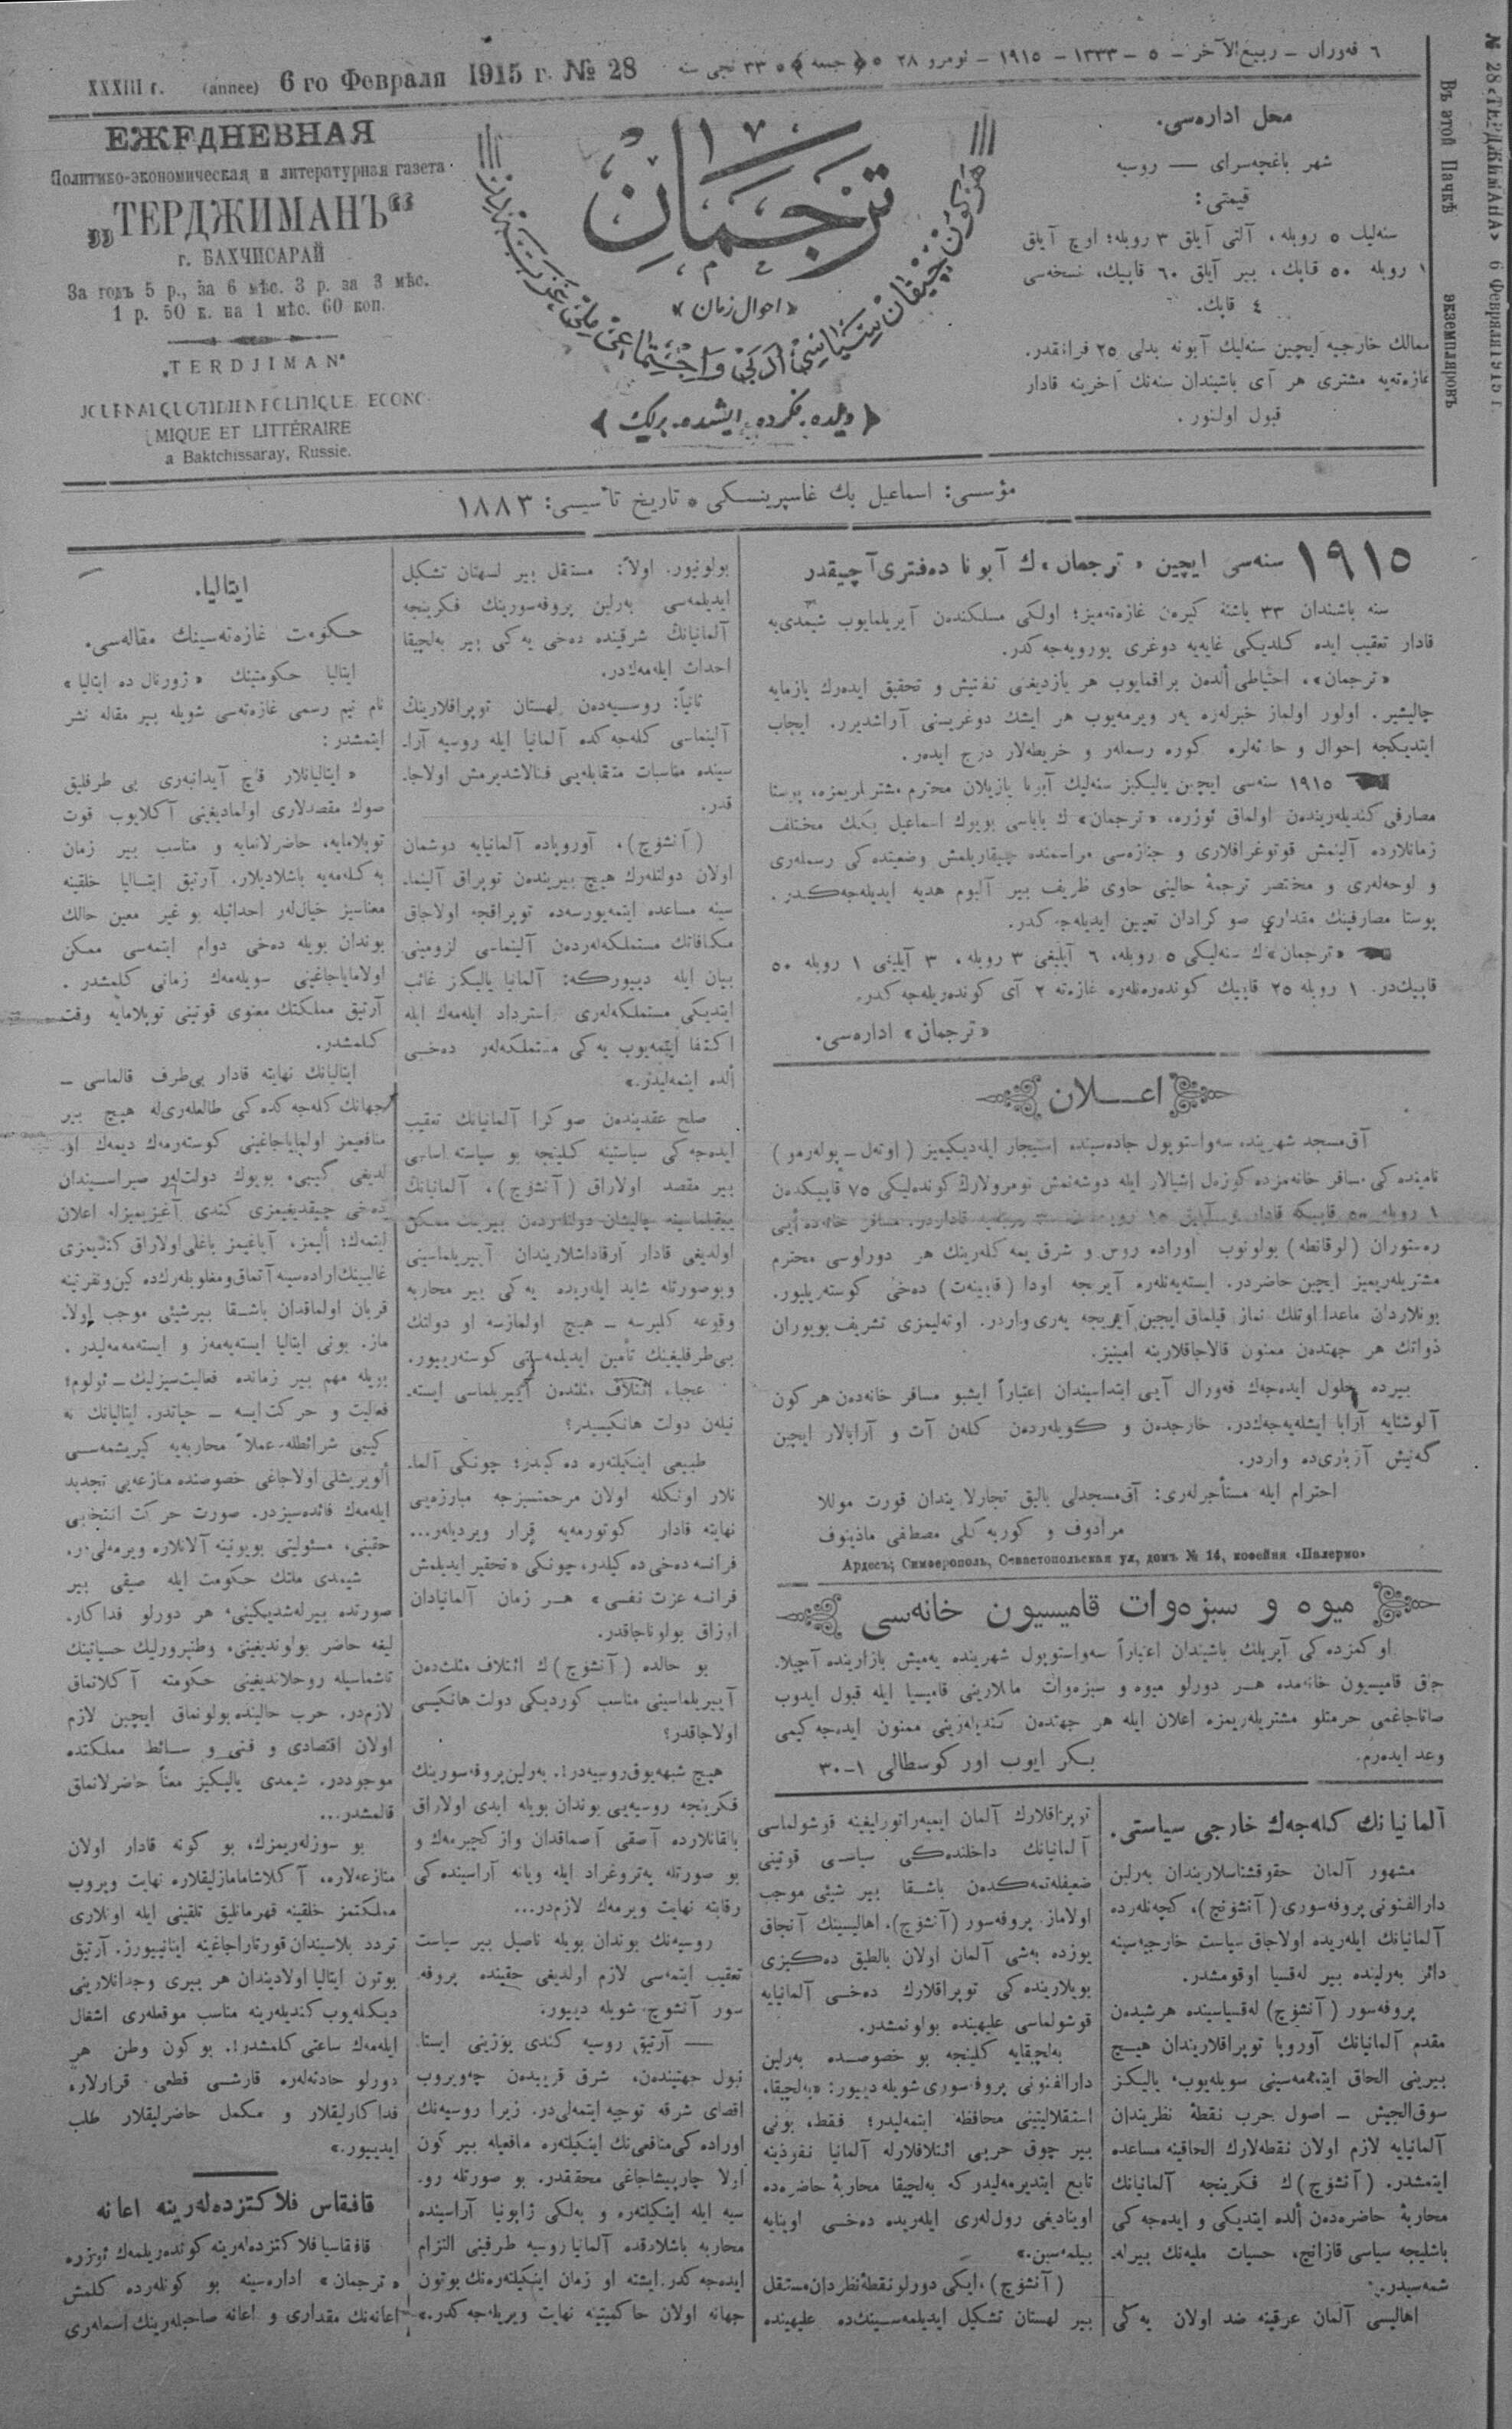 XXXIII г. (année) 6 го Февраля 1915 г. № 28
٦ فەورال – ربيع الآخر – ٥ – ١٣٣٣ – ١٩١٥ – نومرو ٢٨ ٥ ﴿ جمعه ﴾ ٥ ٣٣ نجى سنه
ЕЖЕДНЕВНАЯ
Политико-экономическая и литературная газета
„ТЕРДЖИМАНЪ“
г. БАХЧИСАРАЙ
За годъ 5 р., за 6 мѣс. 3 р. за 3 мѣс.
1 р. 50 к. на 1 мѣс. 60 коп.
„TERDJIMAN“
JOURNAL QUOTIDIEN POLITIQUE ECONO-
MIQUE ET LITTÉRAIRE
a Baktchissaray, Russie.
ترجمان
« احوال زمان »
﴿ ديلده، فكرده، ايشده، بريك ﴾
محل اداره‌سى.
شهر باغچه‌سراى — روسيه
قيمتى:
سنه‌ليك ٥ روبله، آلتى آيلق ٣ روبله؛ اوچ آيلق
١ روبله ٥٠ قاپك، بير آيلق ٦٠ قاپيك، نسخه‌سى
٤ قاپك.
ممالك خارجيه ايچين سنه‌ليك آبونه بدلى ٢٥ فرانقدر.
غازه‌ته‌يه مشترى هر آى باشيندان سنه‌نك آخرينه قادار
قبول اولنور.
№ 28 «ТЕРДЖИМАНА» 6 Февраля 1915 г.
Въ этой Пачкѣ экземпляровъ
مؤسسى: اسماعيل بك غاسپرينسكى ٥ تاريخ تأسيسى: ١٨٨٣
١٩١٥ سنه‌سى ايچين «ترجمان»ك آبونا ده‌فترى آچيقدر
سنه باشندان ٣٣ ياشنه كيره‌ن غازه‌ته‌ميز؛ اولكى مسلكندەن آيريلمايوب شيمدى‌يه
قادار تعقيب ايده كلديكى غايه‌يه دوغرى يورويه‌جه‌كدر.
«ترجمان»، احتياطى ألده‌ن براقمايوب هر يازديغنى تفتيش و تحقيق ايده‌رك يازمايه
چاليشير. اولور اولماز خبرلەره يەر ويرمه‌يوب هر ايشك دوغريسنى آراشديرر. ايجاب
ايتديكجه احوال و حادثه‌لره كوره رسمله‌ر و خريطه‌لار درج ايدەر.
١٩١٥ سنه‌سى ايچين ياليكيز سنه‌ليك آبونا يازيلان محترم مشتريلريمزه، پوستا
مصارفى كنديله‌ريندەن اولماق ئوزره، «ترجمان»ك باباسى بويوك اسماعيل بكيك مختلف
زمانلارده آلينمش فوتوغرافلارى و جنازه‌سى مراسمنده چيقاريلمش وضعيتده‌كى رسمله‌رى
و لوحه‌له‌رى و مختصر ترجمهٔ حالينى حاوى ظريف بير آلبوم هديه ايديله‌جه‌كدر.
پوستا مصارفينك مقدارى صوكرادان تعيين ايديله‌جه‌كدر.
«ترجمان»ك سنه‌ليكى ٥ روبله، ٦ آيليغى ٣ روبله، ٣ آيليغى ١ روبله ٥٠
قاپيك‌در. ١ روبله ٢٥ قاپيك كونده‌ره‌نله‌ره غازه‌ته ٢ آى كونده‌ريله‌جه‌كدر.
«ترجمان» اداره‌سى.
اعـــلان
آق‌مسجد شهرينده سه‌واستوپول جاده‌سينده استيجار ايله‌ديكيميز (اوتەل – پولەرمو)
نامينده‌كى مسافر خانه‌مزده كوزه‌ل اشيالار ايله دوشه‌نمش نومرولارك كونده‌ليكى ٧٥ قاپيكدەن
رەستوران (لوقانطه) بولونوب اوراده روس و شرق يمه‌كله‌رينك هر دورلوسى محترم
مشتريله‌ريميز ايچين حاضردر. ايسته‌يه‌نله‌ره آيريجه اودا (قابينەت) دەخى كوسته‌ريليور.
بونلاردان ماعدا اوتلك نماز قيلماق ايچين آيريجه يەرى واردر. اوته‌ليمزى تشريف بويوران
ذواتك هر جهتدەن ممنون قالاجاقلارينه امينيز.
بيرده حلول ايده‌جه‌ك فەورال آيى ابتداسيندان اعتباراً ايشبو مسافر خانه‌دەن هر كون
آلوشتايه آرابا ايشله‌يه‌جه‌ك‌در. خارجدەن و كويله‌ردەن كله‌ن آت و آرابالار ايچين
گه‌نيش آزبارى‌ده واردر.
احترام ايله مستأجرله‌رى: آق‌مسجدلى باليق تجارلاريندان قورت موللا
مرادوف و كوربه‌كلى مصطفى ماذينوف
Адресъ; Симферополь, Севастопольская ул, домъ № 14, кофейня «Палермо»
ميوه و سبزه‌وات قاميسيون خانه‌سى
اوكمزده‌كى آپريلك باشيندان اعتباراً سه‌واستوپول شهرينده يه‌ميش بازارينده آچيلا-
جاق قاميسيون خانه‌مده هر دورلو ميوه و سبزه‌وات ماللارينى قاميسيا ايله قبول ايدوب
صاتاجاغمى حرمتلو مشتريله‌ريمزه اعلان ايله هر جهتدەن كنديله‌رينى ممنون ايده‌جه‌كيمى
وعد ايدەرم. بكر ايوب اور كوسطالى ١-٣٠
آلمانيانك كله‌جه‌ك خارجى سياستى.
مشهور آلمان حقوقشناسلاريندان بەرلين
دارالفنونى پروفه‌سورى (آنشوتچ)، كچه‌نله‌رده
آلمانيانك ايله‌ريده اولاجاق سياست خارجيه‌سينه
دائر بەرلينده بير لەقسيا اوقومشدر.
پروفه‌سور (آنشوچ) لەقسياسينده هرشيدەن
مقدم آلمانيانك آوروپا توپراقلاريندان هيچ
بيرينى الحاق ايتمه‌مه‌سينى سويله‌يوب، ياليكز
سوق‌الجيش – اصول حرب نقطهٔ نظريندان
آلمانيايه لازم اولان نقطه‌لارك الحاقينه مساعده
ايتمشدر. (آنشوچ)ك فكرينجه آلمانيانك
محاربهٔ حاضره‌دەن ألده ايتديكى و ايده‌جه‌كى
باشليجه سياسى قازانچ، حسيات مليه‌نك بيرله-
شمه‌سيدر.
اهاليسى آلمان عرقينه ضد اولان يه‌كى
توپراقلارك آلمان ايمپه‌راتورليغينه قوشولماسى
آلمانيانك داخلنده‌كى سياسى قوتينى
ضعيفله‌تمه‌كدەن باشقا بير شيئى موجب
اولاماز. پروفه‌سور (آنشوچ)، اهاليسينك آنجاق
يوزده بەشى آلمان اولان بالطيق دەكيزى
بويلارينده‌كى توپراقلارك دەخى آلمانيايه
قوشولماسى عليهينده بولونمشدر.
بەلچيقايه كلينجه بو خصوصده بەرلين
دارالفنونى پروفه‌سورى شويله دييور: «بەلچيقا،
استقلاليتينى محافظه ايتمه‌ليدر؛ فقط، بونى
بير چوق حربى ائتلافلارله آلمانيا نفوذينه
تابع ايتديرمه‌ليدر كه بەلچيقا محاربهٔ حاضره‌ده
اويناديغى رول‌له‌رى ايله‌ريده دەخى اوينايه
بيلمه‌سين.»
(آنشوچ)، ايكى دورلو نقطهٔ نظردان مستقل
بير لهستان تشكيل ايديلمه‌سينك‌ده عليهينده
بولونيور. اولاً: مستقل بير لهستان تشكيل
ايديلمه‌سى بەرلين پروفه‌سورينك فكرينجه
آلمانيانك شرقينده دەخى يه‌كى بير بەلچيقا
احداث ايله‌مه‌كدر.
ثانياً: روسيه‌دەن لهستان توپراقلارينك
آلينماسى كله‌جه‌كده آلمانيا ايله روسيه آرا-
سينده مناسبات متقابله‌يى فنالاشديرمش اولاجا-
قدر.
(آنشوچ)، آوروپاده آلمانيايه دوشمان
اولان دولتله‌رك هيچ بيريندەن توپراق آلينما-
سينه مساعده ايتمه‌يورسه‌ده توپراقجه اولاجاق
مكافاتك مستملكه‌له‌ردەن آلينماسى لزومينى
بيان ايله دييوركه: آلمانيا ياليكز غائب
ايتديكى مستملكه‌له‌رى استرداد ايله‌مه‌ك ايله
اكتفا ايتمه‌يوب يه‌كى مستملكه‌له‌ر دەخى
ألده ايتمه‌ليدر.»
صلح عقديندەن صوكرا آلمانيانك تعقيب
ايده‌جه‌كى سياستينه كلينجه بو سياسته اساسى
بير مقصد اولاراق (آنشوچ)، آلمانيانك
ييقيلماسينه چاليشان دولتله‌ردەن بيرينك ممكن
اولديغى قادار آرقاداشلاريندان آييريلماسينى
وبوصورتله شايد ايله‌ريده يه‌كى بير محاربه
وقوعه كليرسه – هيچ اولمازسه او دولتك
بى‌طرفليغينك تأمين ايديلمه‌سينى كوسته‌رييور.
عجبا، ائتلاف مثلثدەن آييريلماسى ايسته-
نيله‌ن دولت هانكيسيدر؟
طبيعى اينكيلتەره دەكيلدر؛ چونكى آلما-
نلار اونكله اولان مرحمتسزجه مبارزه‌يى
نهايته قادار كوتورمه‌يه قرار ويرديله‌ر...
فرانسه دەخى دەكيلدر، چونكى «تحقير ايديلمش
فرانسه عزت نفسى» هر زمان آلمانيادان
اوزاق بولوناجاقدر.
بو حالده (آنشوچ)ك ائتلاف مثلث‌دەن
آييريلماسينى مناسب كورديكى دولت هانكيسى
اولاجاقدر؟
هيچ شبهه‌يوق روسيه‌در!. بەرلين پروفه‌سورينك
فكرينجه روسيه‌يى بوندان بويله ابدى اولاراق
بالقانلارده آصقى آصماقدان واز كچيرمه‌ك و
بو صورتله پەتروغراد ايله ويانه آراسينده‌كى
رقابته نهايت ويرمه‌ك لازم‌در...
روسيه‌نك بوندان بويله ناصيل بير سياست
تعقيب ايتمه‌سى لازم اولديغى حقينده پروفه-
سور آنشوچ، شويله دييور:
— آرتيق روسيه كندى يوزينى ايستا-
نبول جهتيندەن، شرق قريبدەن چه‌ويروب
اقصاى شرقه توجيه ايتمه‌لى‌در. زيرا روسيه‌نك
اوراده‌كى منافعى‌نك اينكيلتەره منافعيله بير كون
اولا چارپيشاجاغى محققدر. بو صورتله رو-
سيه ايله اينكيلتەره و بەلكى ژاپونيا آراسينده
محاربه باشلارقده آلمانيا روسيه طرفينى التزام
ايده‌جه‌كدر. ايشته او زمان اينكيلتەره‌نك بوتون
جهانه اولان حاكميتينه نهايت ويريله‌جه‌كدر.»
ايتاليا.
حكومت غازه‌ته‌سينك مقاله‌سى.
ايتاليا حكومتينك «ژورنال ده ايتاليا»
نام نيم رسمى غازه‌ته‌سى شويله بير مقاله نشر
ايتمشدر:
«ايتاليانلار قاچ آيدانبەرى بى طرفليق
صوك مقصدلارى اولماديغينى آكلايوب قوت
توپلامايه، حاضرلانمايه و مناسب بير زمان
به‌كله‌مه‌يه باشلاديلار. آرتيق ايتاليا خلقينه
معناسيز خيال‌له‌ر احداثيله بو غير معين حالك
بوندان بويله دەخى دوام ايتمه‌سى ممكن
اولاماياجاغينى سويله‌مه‌ك زمانى كلمشدر.
آرتيق مملكتك معنوى قوتينى توپلامايه وقت
كلمشدر.
ايتاليانك نهايته قادار بى‌طرف قالماسى –
جهانك كله‌جه‌كده‌كى طالعله‌رى‌له هيچ بير
منافعمز اولماياجاغينى كوسته‌رمه‌ك ديمه‌ك او-
لديغى گيبى، بويوك دولت‌له‌ر صيراسيندان
دەخى چيقديغيمزى كندى آغيزيمزله اعلان
ايتمه‌ك: أليمز، آياغيمز باغلى اولاراق كنديمزى
غالبينك اراده‌سينه آتماق و مغلوبله‌رك‌ده كين و نفرتينه
قربان اولماقدان باشقا بيرشيئى موجب اولا-
ماز. بونى ايتاليا ايسته‌يه‌مه‌ز و ايسته‌مه‌مه‌ليدر.
بويله مهم بير زمانده فعاليت‌سيزليك – ئولوم؛
فعاليت و حركت ايسه – حياتدر. ايتاليانك نه
كيبى شرائطله، عملاً محاربه‌يه كيريشمه‌سى
ألويريشلى اولاجاغى خصوصنده منازعه‌يى تجديد
ايله‌مه‌ك فائده‌سيزدر. صورت حركت انتخابى
حقينى، مسئوليتى بوينينه آلانلاره ويرمه‌لى‌در.
شيمدى ملتك حكومت ايله صيقى بير
صورتده بيرله‌شديكينى، هر دورلو فداكار-
ليغه حاضر بولونديغينى، وطنپرورليك حسياتينك
تاشماسيله روحلانديغينى حكومته آكلاتماق
لازم‌در. حرب حالينده بولونماق ايچين لازم
اولان اقتصادى و فنى و سائط مملكتده
موجوددر. شيمدى ياليكيز معناً حاضرلانماق
قالمشدر...
بو سوزله‌ريمزك، بو كونه قادار اولان
منازعه‌لاره، آكلاشامامازليقلاره نهايت ويروب
مملكتمز خلقينه قهرمانليق تلقينى ايله اونلارى
تردد بلاسيندان قورتاراجاغينه اينانييورز. آرتيق
بوتون ايتاليا اولاديندان هر بيرى وجدانلارينى
ديكله‌يوب كنديله‌رينه مناسب موقعله‌رى اشغال
ايله‌مه‌ك ساعتى كلمشدر!. بو كون وطن هر
دورلو حادثه‌له‌ره قارشى قطعى قرارلاره
فداكارليقلار و مكمل حاضرليقلار طلب
ايدييور.»
قافقاس فلاكتزده‌له‌رينه اعانه
قافقاسيا فلاكتزده‌له‌رينه كونده‌ريلمه‌ك ئوزره
«ترجمان» اداره‌سينه بو كونله‌رده كلمش
اعانه‌نك مقدارى و اعانه صاحبله‌رينك اسمله‌رى